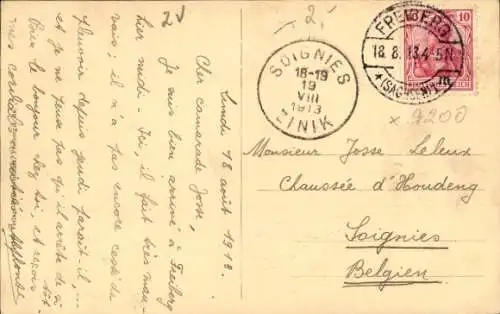 Lundi 18 août 1913.
Cher camarade Josse,
Je suis bien arrivé à Freiberg
hier midi. Ici, il fait très mau-
vais; il n'a pas encore cessé de
pleuvoir depuis jeudi paraît-il, ...
et je ne pense pas qu'il arrête de si
tôt.
Bien le bonjour chez toi, et reçois
mes
2
SOIGNIES
18-19
19
VIII
1913
ZINIK
FREIBERG
18.8.13.4-5N.
*(SACHSEN)
10
× 9200
Monsieur Josse Leleux
Chaussée d'Houdeng
Soignies
Belgien